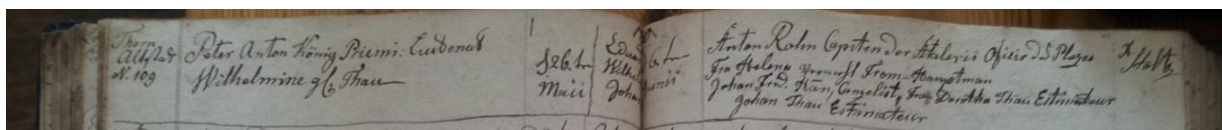 Thorn
Altstadt
N. 109
Peter Anton König Premi: Lieutenat
Wilhelmine gb. Thau
d 26.tn
Maii
Eduard
Wilhelm
Johan
6.tn
Junii
Anton Rohn Capiten der Artelerii Oficir d S Plazes
Fra Helena Vereweht From Hauptman
Johan Ferd. Kan, Cangelist, Frau Dorothea Thau Estimateur
Johan Thau Estimateur
Holtz